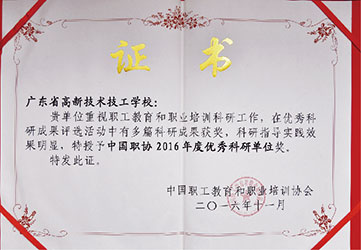 证书
广东省高新技术技工学校：
贵单位重视职工教育和职业培训科研工作，在优秀科
研成果评选活动中有多篇科研成果获奖，科研指导实践效
果明显，特授予中国职协2016年度优秀科研单位奖。
特发此证。
中国职工教育和职业培训协会
二〇一六年十一月